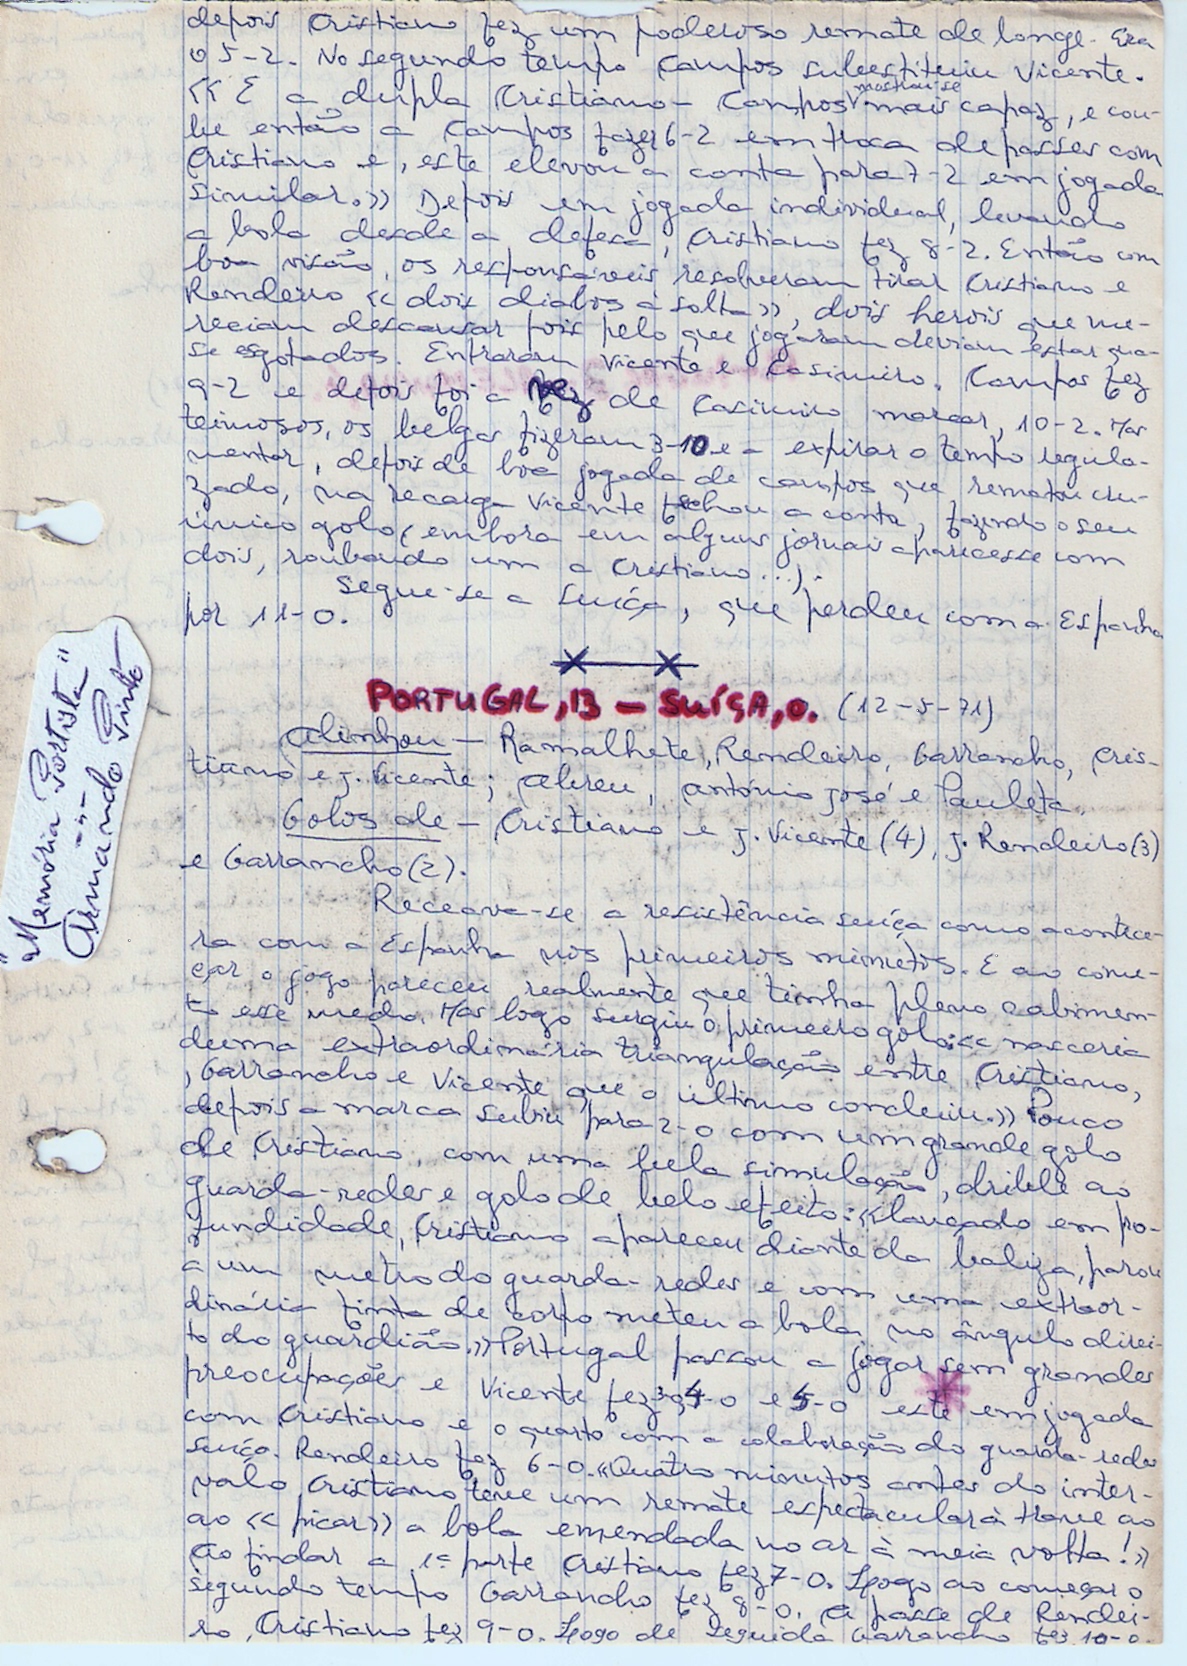 depois Cristiano fez um poderoso remate de longe. Era
o 5-2. No segundo tempo Campos substituiu Vicente.
<< E a dupla Cristiano - Campos mostrou-se mais capaz, e cou-
be então a Campos fazer 6-2 em troca de passes com
Cristiano e, este elevou a conta para 7-2 em jogada
similar.>> Depois em jogada individual, levando
a bola desde a defesa, Cristiano fez 8-2. Então com
boa visão, os responsáveis resolveram tirar Cristiano e
Rendeiro << dois diabos à solta>>, dois herois que me-
reciam descansar pois pelo que jogaram deviam estar qua-
se esgotados. Entraram Vicente e Casimiro. Campos fez
9-2 e depois foi a vez de Casimiro marcar, 10-2. Mas
teimosos, os belgas fizeram 3-10 e a expirar o tempo regula-
mentar, depois de boa jogada de Campos que rematou cru-
zado, na recarga Vicente fechou a conta, fazendo o seu
único golo (embora em alguns jornais aparecesse com
dois, roubando um a Cristiano...).
Segue-se a Suíça, que perdeu com a Espanha
por 11-0.
PORTUGAL, 13 - SUÍÇA, 0. (12-5-71)
Alinhou - Ramalhete, Rendeiro, Garrancho, Cris-
tiano e J. Vicente; Abreu, António José e Pauleta.
Golos de - Cristiano e J. Vicente (4), J. Rendeiro (3)
e Garrancho (2).
Receava-se a resistência suíça como aconte-
ra com a Espanha nos primeiros minutos. E ao come-
çar o jogo pareceu realmente que tinha pleno cabimen-
to esse medo. Mas logo surgiu o primeiro golo: << nasceria
duma extraordinária triangulação entre Cristiano,
, Garrancho e Vicente que o último concluiu.>> Pouco
depois a marca subiu para 2-0 com um grande golo
de Cristiano, com uma bela simulação, drible ao
guarda-redes e golo de belo efeito: <<lançado em pro-
fundidade, Cristiano apareceu diante da baliza, parou
a um metro do guarda-redes e com uma extraor-
dinária finta de corpo meteu a bola no ângulo direi-
to do guardião.>> Portugal passou a jogar sem grandes
preocupações e Vicente fez 3, 4-0 e 5-0 este em jogada
com Cristiano e o quarto com a colaboração do guarda-redes
suíço. Rendeiro fez 6-0. <<Quatro minutos antes do inter-
valo Cristiano teve um remate espectacular à trave ao
ao << picar>> a bola emendada no ar à meia volta!>>
Ao findar a 1ª parte Cristiano fez 7-0. Logo ao começar o
segundo tempo Garrancho fez 8-0. A passe de Rendei-
ro, Cristiano fez 9-0. Logo de seguida Garrancho fez 10-0.
"Memória Portista"
-"-
Armando Pinto